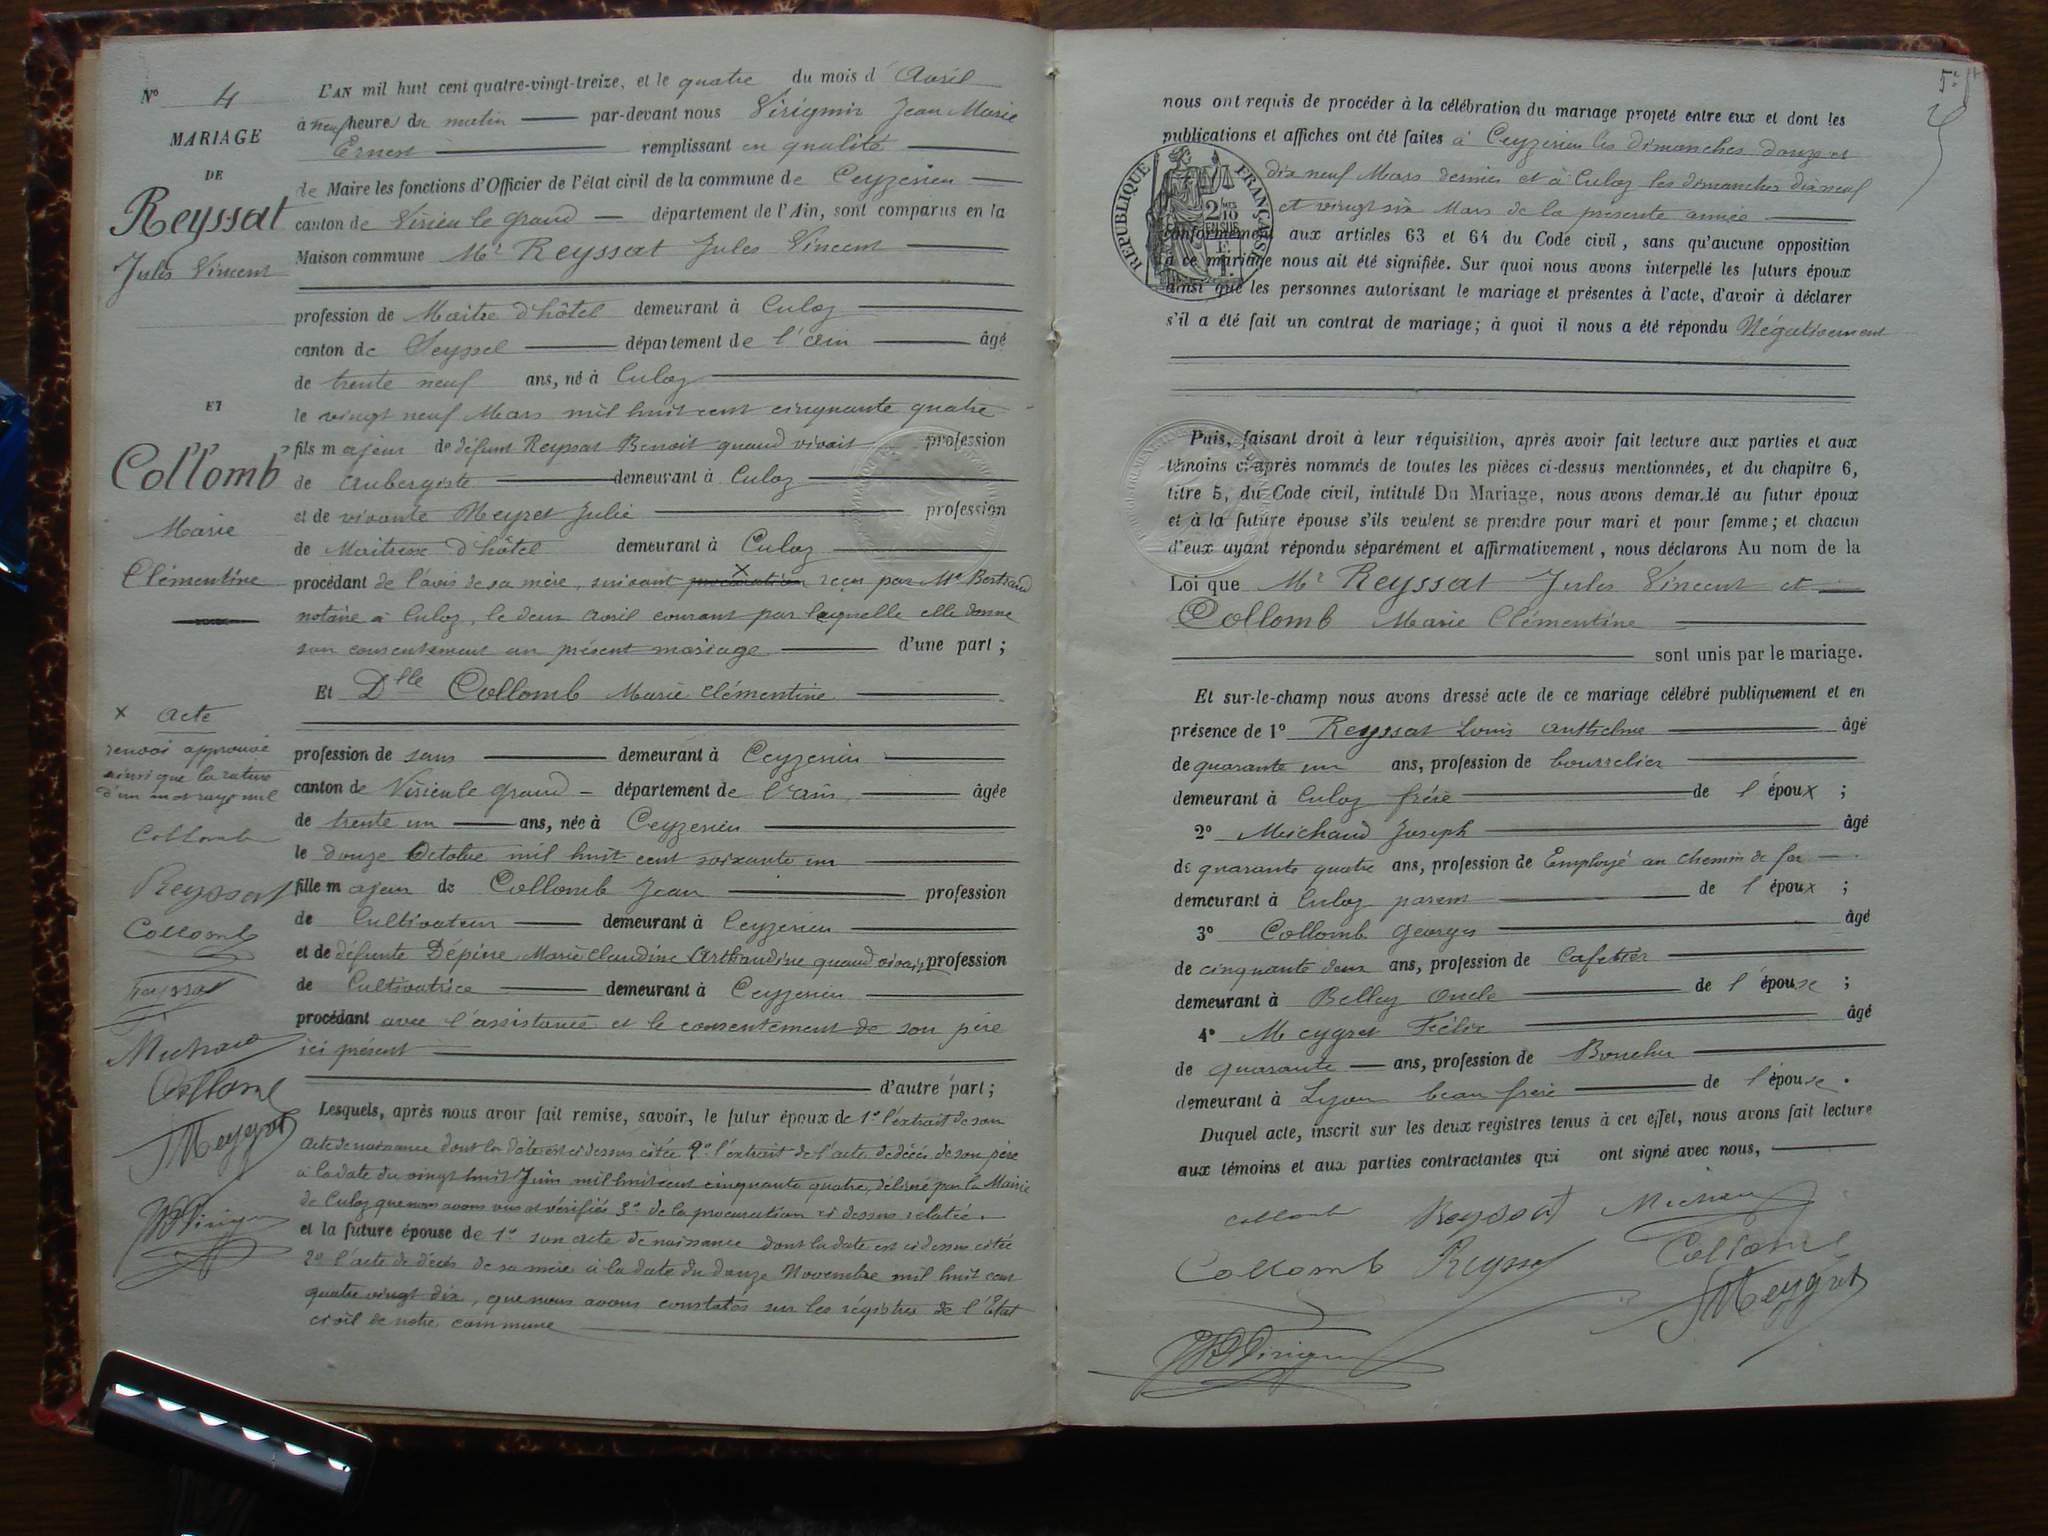 N° 4
MARIAGE
DE
Reyssat
Jules Vincent
ET
Collomb
Marie
Clémentine
L'AN mil huit cent quatre-vingt-treize, et le quatre du mois d'Avril
à neuf heures du matin par-devant nous Virignin Jean Marie
Ernest remplissant en qualité
de Maire les fonctions d'Officier de l'état civil de la commune de Ceyzerieu
canton de Virieu le grand département de l'Ain, sont comparus en la
Maison commune Mr Reyssat Jules Vincent
profession de Maitre d'hôtel demeurant à Culoz
canton de Seyssel département de l'ain âgé
de trente neuf ans, né à Culoz
le vingt neuf Mars mil huit cent cinquante quatre
fils majeur de défunt Reyssat Benoit quand vivait profession
de Aubergiste demeurant à Culoz
et de vivante Meyret Julie profession
de Maitresse d'hôtel demeurant à Culoz
procédant de l'avis de sa mère, suivant procuration reçu par Me Bertrand
notaire à Culoz, le deux avril courant par laquelle elle donne
son consentement au présent mariage d'une part ;
Et Dlle Collomb Marie Clémentine
profession de sans demeurant à Ceyzerieu
canton de Virieu le grand département de l'ain âgée
de trente un ans, née à Ceyzerieu
le douze Octobre mil huit cent soixante un
fille majeur de Collomb Jean profession
de Cultivateur demeurant à Ceyzerieu
et de défunte Dépine Marie Claudine Arthaudine quand vivait profession
de Cultivatrice demeurant à Ceyzerieu
procédant avec l'assistance et le consentement de son père
ici présent
d'autre part ;
Lesquels, après nous avoir fait remise, savoir, le futur époux de 1° l'extrait de son
acte de naissance dont la date est ci dessus citée 2° l'extrait de l'acte de décès de son père
à la date du vingt huit Juin mil huit cent cinquante quatre, délivré par la Mairie
de Culoz que nous avons vus et vérifiés 3° de la procuration ci dessus relatée.
et la future épouse de 1° son acte de naissance dont la date est ci dessus citée
2° l'acte de décès de sa mère à la date du douze Novembre mil huit cent
quatre vingt dix, que nous avons constatés sur les régistres de l'Etat
civil de notre commune
x acte
renvoi approuvé
ainsi que la rature
d'un mot rayé nul
Collomb
Reyssat
Collomb
Reyssat
Michaud
Collomb
Meygret
Virignin
nous ont requis de procéder à la célébration du mariage projeté entre eux et dont les
publications et affiches ont été faites à Ceyzerieu les dimanches douze et
dix neuf Mars dernier et à Culoz les dimanches dix neuf
et vingt six Mars de la présente année
conformément aux articles 63 et 64 du Code civil, sans qu'aucune opposition
à ce mariage nous ait été signifiée. Sur quoi nous avons interpellé les futurs époux
ainsi que les personnes autorisant le mariage et présentes à l'acte, d'avoir à déclarer
s'il a été fait un contrat de mariage ; à quoi il nous a été répondu Négativement
RÉPUBLIQUE FRANÇAISE
Puis, faisant droit à leur réquisition, après avoir fait lecture aux parties et aux
témoins ci-après nommés de toutes les pièces ci-dessus mentionnées, et du chapitre 6,
titre 5, du Code civil, intitulé Du Mariage, nous avons demandé au futur époux
et à la future épouse s'ils veulent se prendre pour mari et pour femme ; et chacun
d'eux ayant répondu séparément et affirmativement, nous déclarons Au nom de la
Loi que Mr Reyssat Jules Vincent et
Collomb Marie Clémentine
sont unis par le mariage.
Et sur-le-champ nous avons dressé acte de ce mariage célébré publiquement et en
présence de 1° Reyssat Louis Anthelme âgé
de quarante un ans, profession de bourrelier
demeurant à Culoz frère de l'époux ;
2° Michaud Joseph âgé
de quarante quatre ans, profession de Employé au chemin de fer
demeurant à Culoz parent de l'époux ;
3° Collomb Georges âgé
de cinquante deux ans, profession de Cafetier
demeurant à Belley Oncle de l'épouse ;
4° Meygret Félix âgé
de quarante ans, profession de Boucher
demeurant à Lyon beau frère de l'épouse.
Duquel acte, inscrit sur les deux registres tenus à cet effet, nous avons fait lecture
aux témoins et aux parties contractantes qui ont signé avec nous,
Collomb Reyssat Michaud
Collomb Reyssat Collomb
Meygret
Virignin